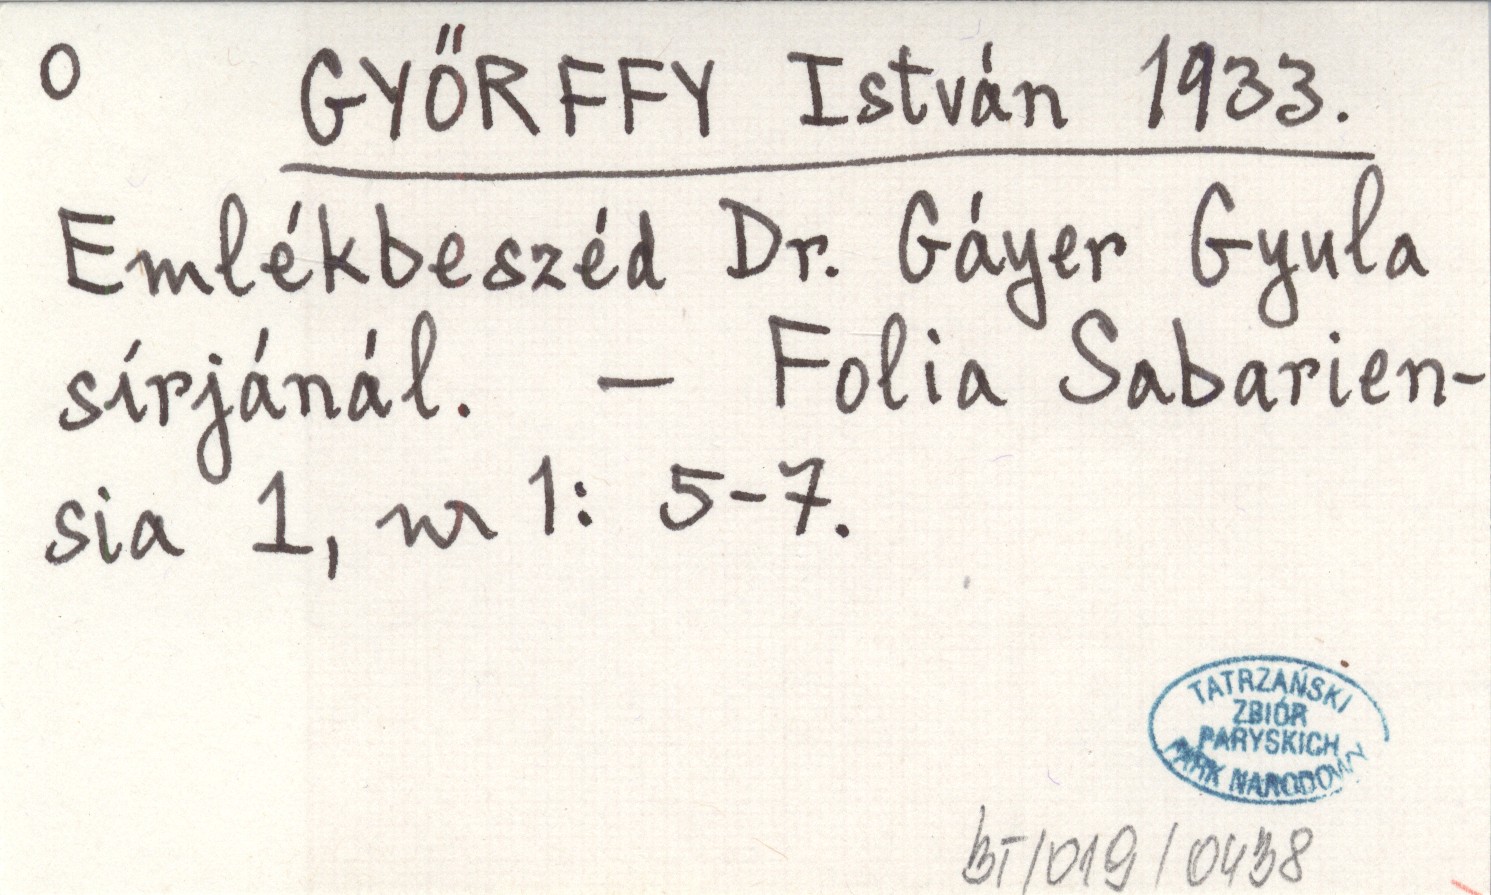 O GYŐRFFY István 1933.
Emlékbeszéd Dr. Gáyer Gyula
sírjánál. — Folia Sabarien-
sia 1, nr 1: 5-7.
TATRZAŃSKI
ZBIÓR
PARYSKICH
PARK NARODOWY
BT/019/0438